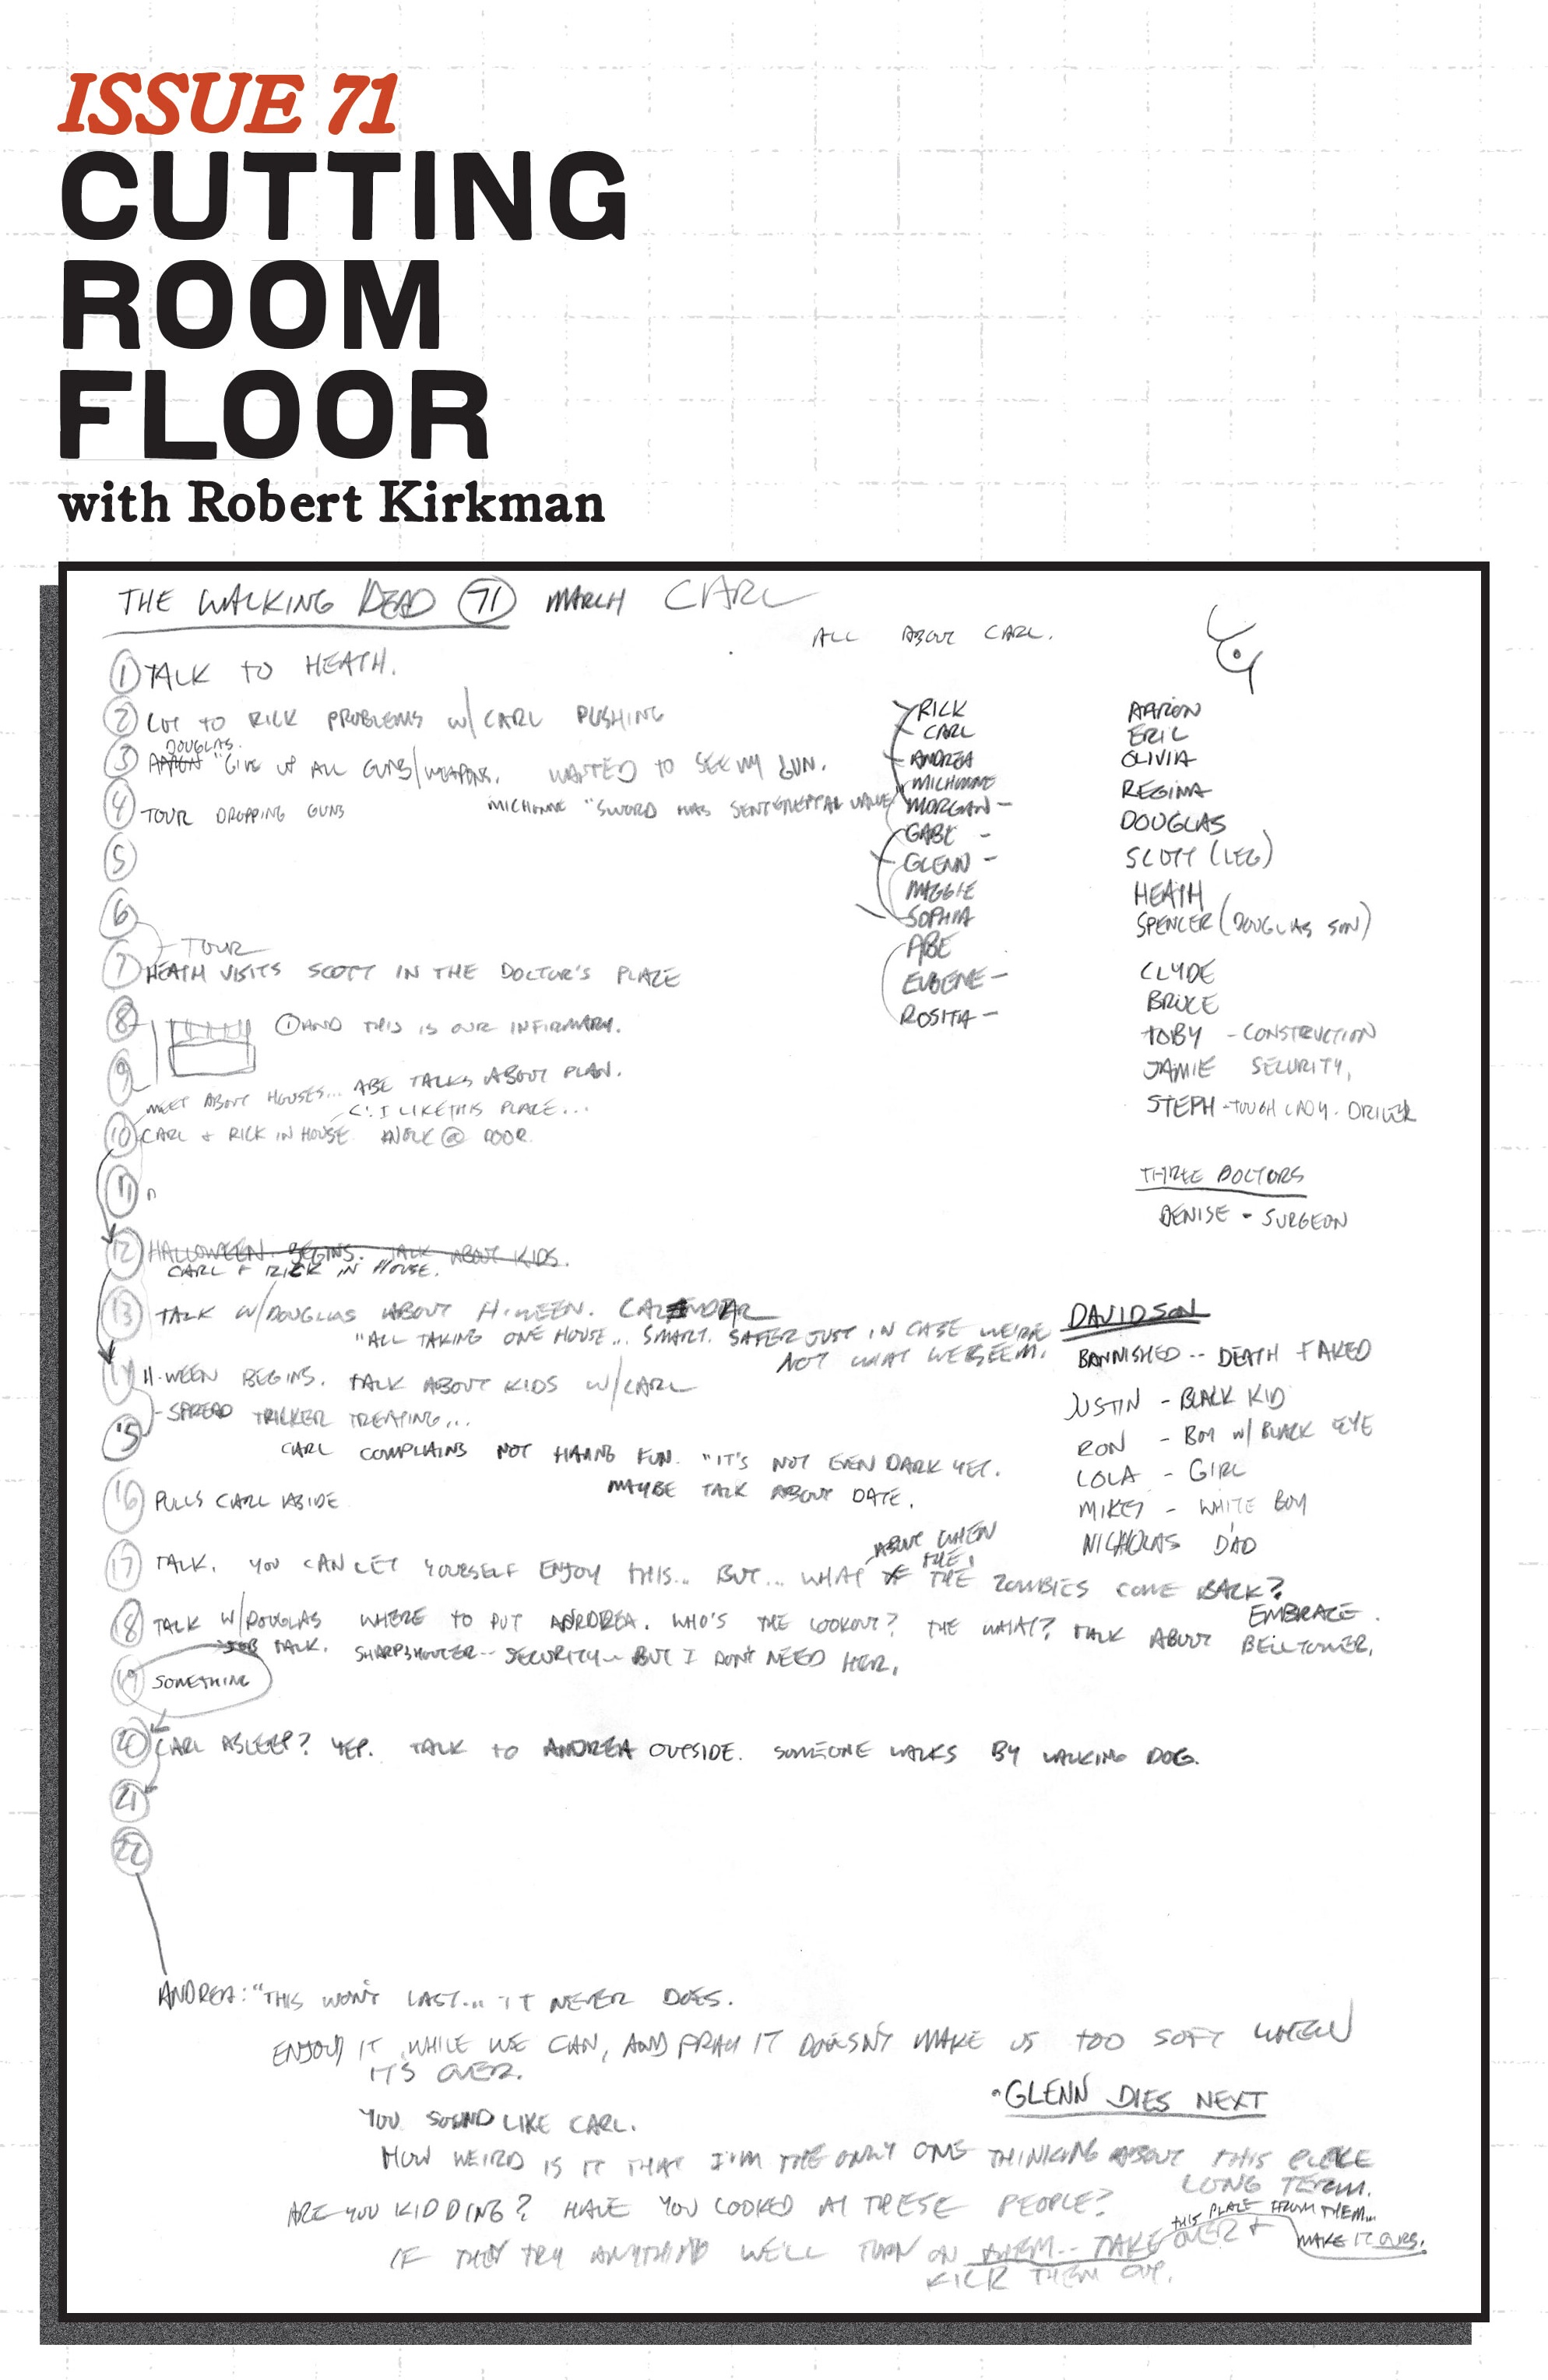 ISSUE 71
CUTTING
ROOM
FLOOR
with Robert Kirkman
THE WALKING DEAD 71 MARCH CARL
ALL ABOUT CARL.
1 TALK TO HEATH.
2 CUT TO RICK PROBLEMS W/CARL PUSHING
DOUGLAS.
3 AARON "GIVE UP ALL GUNS/WEAPONS. WANTED TO SEE MY GUN.
4 TOUR DROPPING GUNS MICHONNE "SWORD HAS SENTEMENTAL VALUE"
5
6
- TOUR
7 HEATH VISITS SCOTT IN THE DOCTOR'S PLACE
8 1 AND THIS IS OUR INFIRMARY.
9
MEET ABOUT HOUSES... ABE TALKS ABOUT PLAN.
C: I LIKE THIS PLACE...
10 CARL + RICK IN HOUSE KNOCK @ DOOR.
11 "
12 HALLOWEEN BEGINS. TALK ABOUT KIDS.
CARL + RICK IN HOUSE.
13 TALK W/DOUGLAS ABOUT H-WEEN. CALENDAR
"ALL TAKING ONE HOUSE... SMART. SAFER JUST IN CASE WE'RE
NOT WHAT WE SEEM.
14 H-WEEN BEGINS. TALK ABOUT KIDS W/CARL
- SPREAD TRICKER TREATING...
15
CARL COMPLAINS NOT HAVING FUN. "IT'S NOT EVEN DARK YET.
MAYBE TALK ABOUT DATE.
16 PULLS CARL ASIDE
ABOUT WHEN
THE,
17 TALK. YOU CAN LET YOURSELF ENJOY THIS... BUT... WHAT IF THE ZOMBIES COME BACK?
EMBRACE.
18 TALK W/DOUGLAS WHERE TO PUT ANDREA. WHO'S THE LOOKOUT? THE WHAT? TALK ABOUT BELLTOWER.
JOB TALK. SHARPSHOOTER-- SECURITY-- BUT I DON'T NEED HER.
19 SOMETHING
20 CARL ASLEEP? YEP. TALK TO ANDREA OUTSIDE. SOMEONE WALKS BY WALKING DOG.
21
22
RICK
CARL
ANDREA
MICHONNE
MORGAN -
GABE -
GLENN -
MAGGIE
SOPHIA
ABE
EUGENE -
ROSITA -
AARON
ERIC
OLIVIA
REGINA
DOUGLAS
SCOTT (LEG)
HEATH
SPENCER (DOUGLAS SON)
CLYDE
BRUCE
TOBY - CONSTRUCTION
JAMIE SECURITY,
STEPH - TOUGH LADY. DRIVER
THREE DOCTORS
DENISE - SURGEON
DAVIDSON
BANNISHED -- DEATH FAKED
JUSTIN - BLACK KID
RON - BOY W/ BLACK EYE
LOLA - GIRL
MIKEY - WHITE BOY
NICHOLAS DAD
ANDREA: "THIS WON'T LAST... IT NEVER DOES.
ENJOY IT WHILE WE CAN, AND PRAY IT DOESN'T MAKE US TOO SOFT WHEN
IT'S OVER.
• GLENN DIES NEXT
YOU SOUND LIKE CARL.
HOW WEIRD IS IT THAT I'M THE ONLY ONE THINKING ABOUT THIS PLACE
LONG TERM.
ARE YOU KIDDING? HAVE YOU LOOKED AT THESE PEOPLE?
THIS PLACE FROM THEM...
IF THEY TRY ANYTHING WE'LL TURN ON THEM-- TAKE OVER + MAKE IT OURS.
KICK THEM OUT.